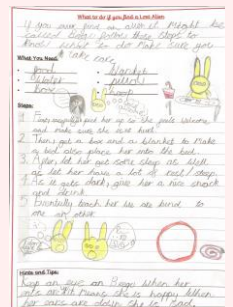 What to do if you find a Lost Alien
If you ever find an alien it might be
called Beegu follow these steps to
know what to do make sure you
take care
What You Need:
food
Water
Box
Blanket
Hoop
Steps:
1. pick her up so she feels Welcome
and make sure she is not hurt
2. Then get a box and a blanket to Make
a bed also place her into the bed.
3. After, let her get some sleep as Well
as let her have a lot of rest/sleep
4. As it gets dark, give her a nice snack
and drink
5. Eventually teach her to be kind to
one an other
Hints and Tips:
Keep an eye on Beegu When her
ears are it means she is happy When
her ears are down she is sad